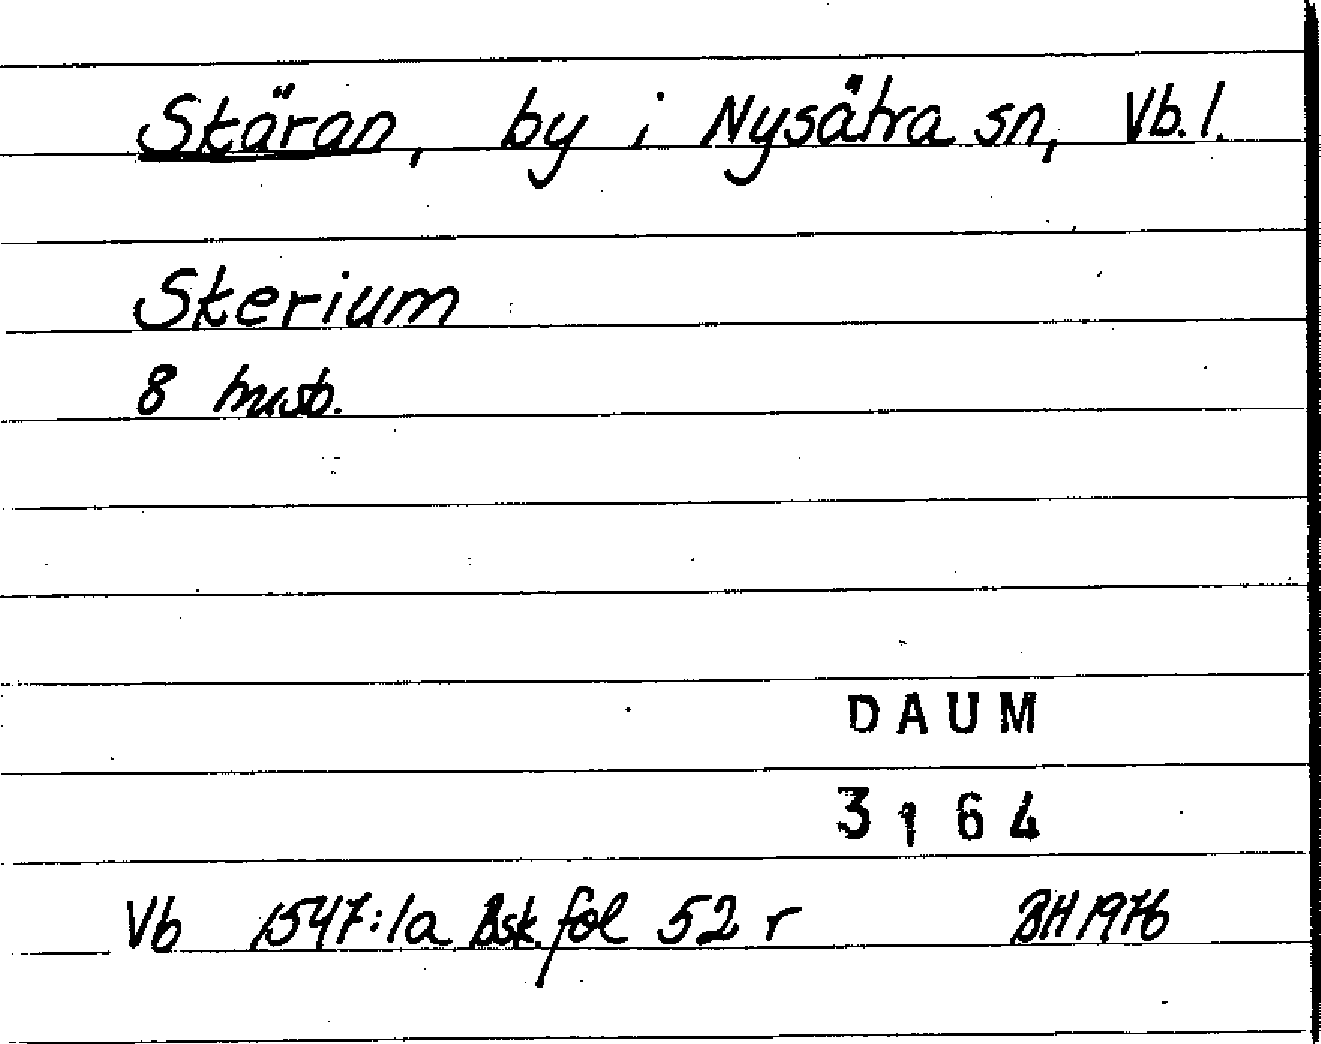 Skäran, by i Nysätra sn, Vb. l.
Skerium
8 husb.
DAUM
3164
Vb 1547:1a Åsk. fol 52 r BH 1976